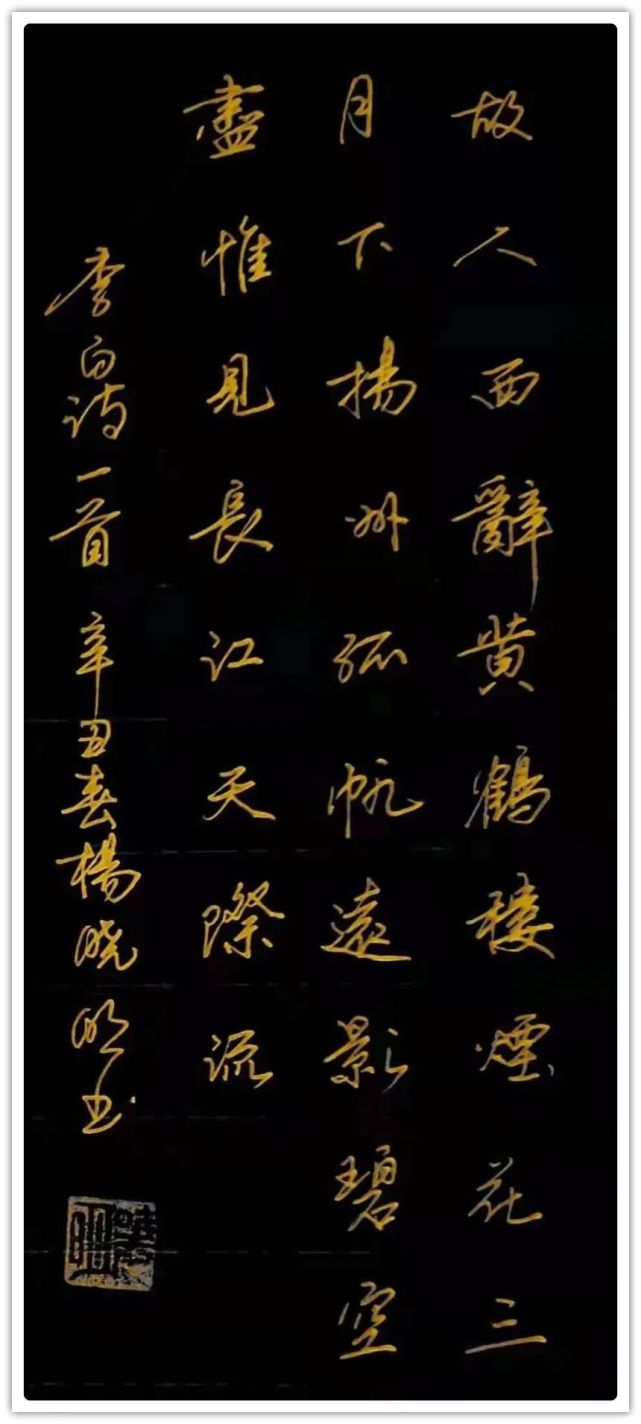 故人西辭黄鶴樓煙花三
月下揚州孤帆遠影碧空
盡惟見長江天際流
李白詩一首 辛丑春楊晓明书